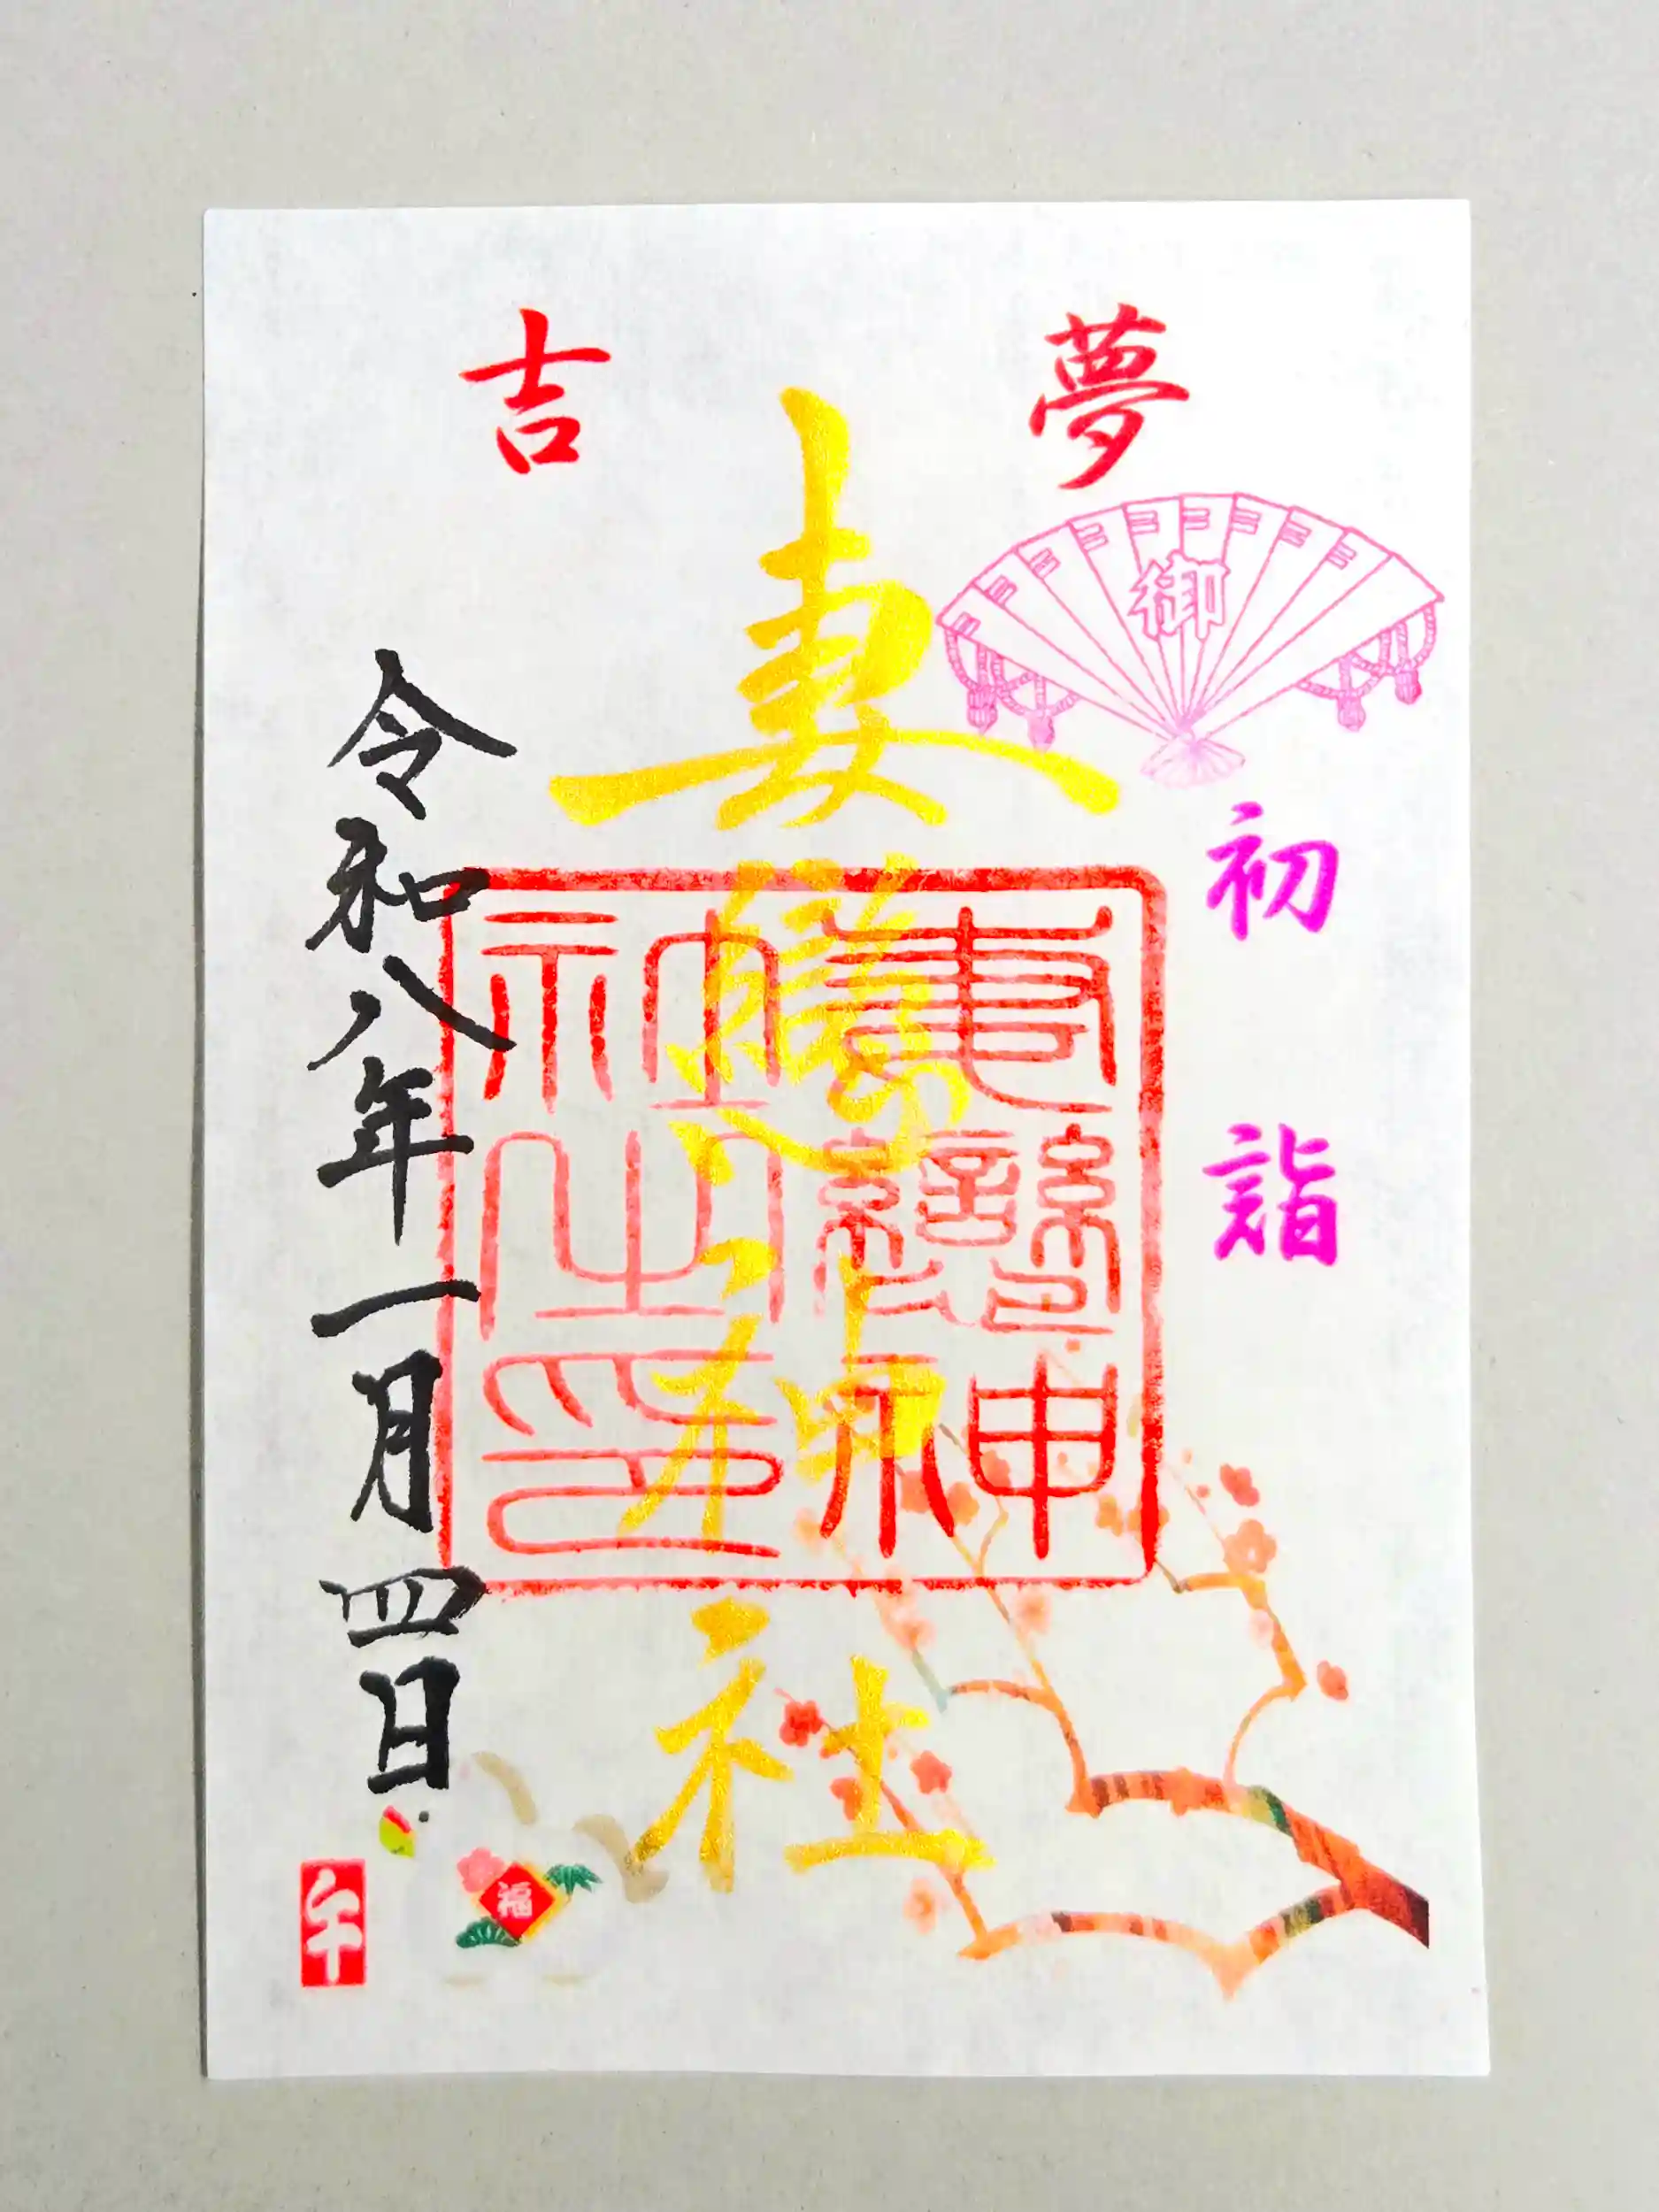 夢
吉
御
初詣
妻戀神社
妻戀神社之印
令和八年一月四日
福
午